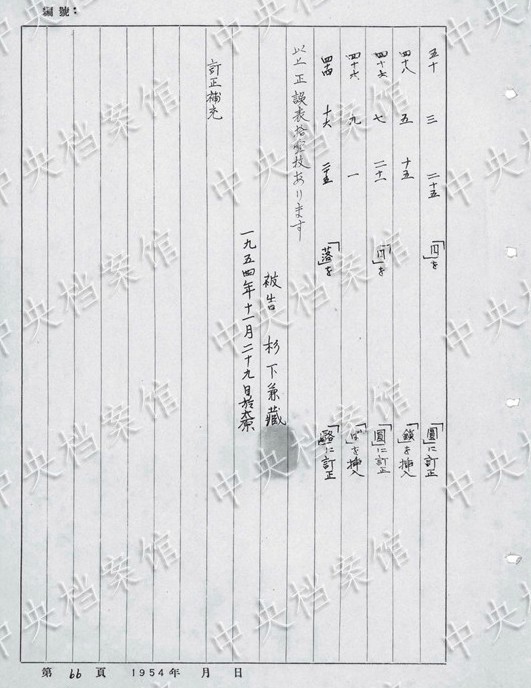 編號：
五十 三 二十五 「円」を 「圓」に訂正
四十八 五 十五 「鎖」を挿入
四十七 七 二十一 「円」を 「圓」に訂正
四十六 九 一 「ば」を挿入
四十四 十六 二十五 「落」を 「略」に訂正
以上正誤表
あります
被告 杉下兼藏
一九五四年十一月二十九日於太原
訂正補充
第 66 頁 1954年 月 日
中央档案馆